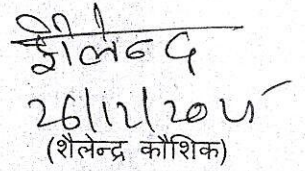 शैलेन्द्र
26/12/2015
(शैलेन्द्र कौशिक)